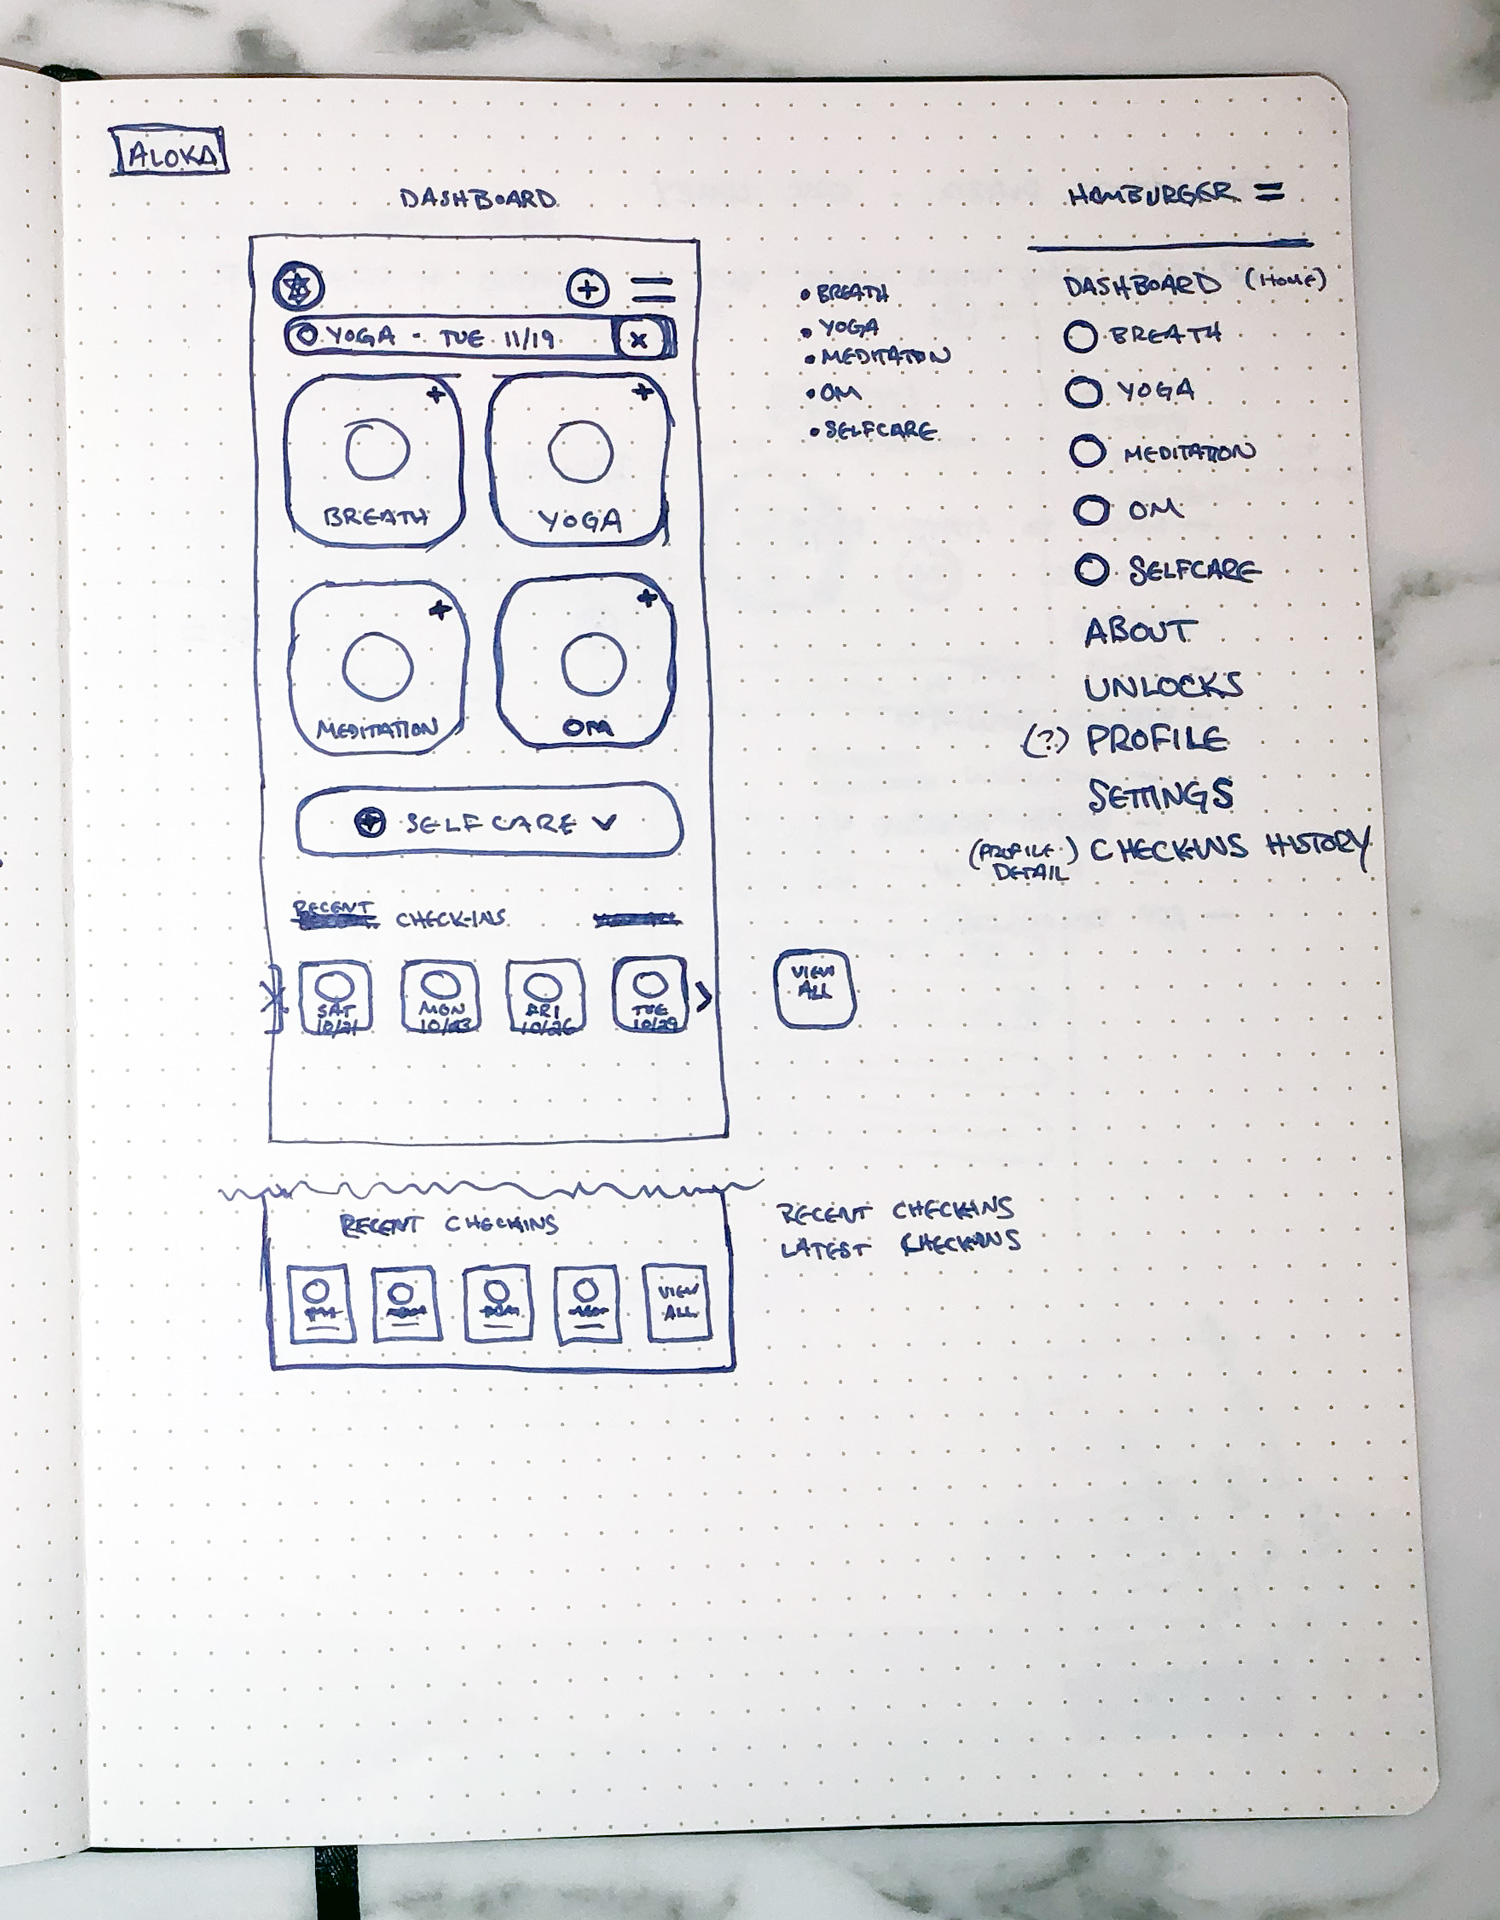 ALOKA
DASHBOARD
YOGA - TUE 11/19 X
BREATH
YOGA
MEDITATION
OM
+ SELFCARE
RECENT CHECK-INS
SAT
10/21
MON
10/23
FRI
10/26
TUE
10/29
VIEW
ALL
RECENT CHECKINS
VIEW
ALL
RECENT CHECKINS
LATEST CHECKINS
• BREATH
• YOGA
• MEDITATON
• OM
• SELFCARE
HAMBURGER =
DASHBOARD (HOME)
BREATH
YOGA
MEDITATION
OM
SELFCARE
ABOUT
UNLOCKS
(?) PROFILE
SETTINGS
(PROFILE DETAIL) CHECK-INS HISTORY